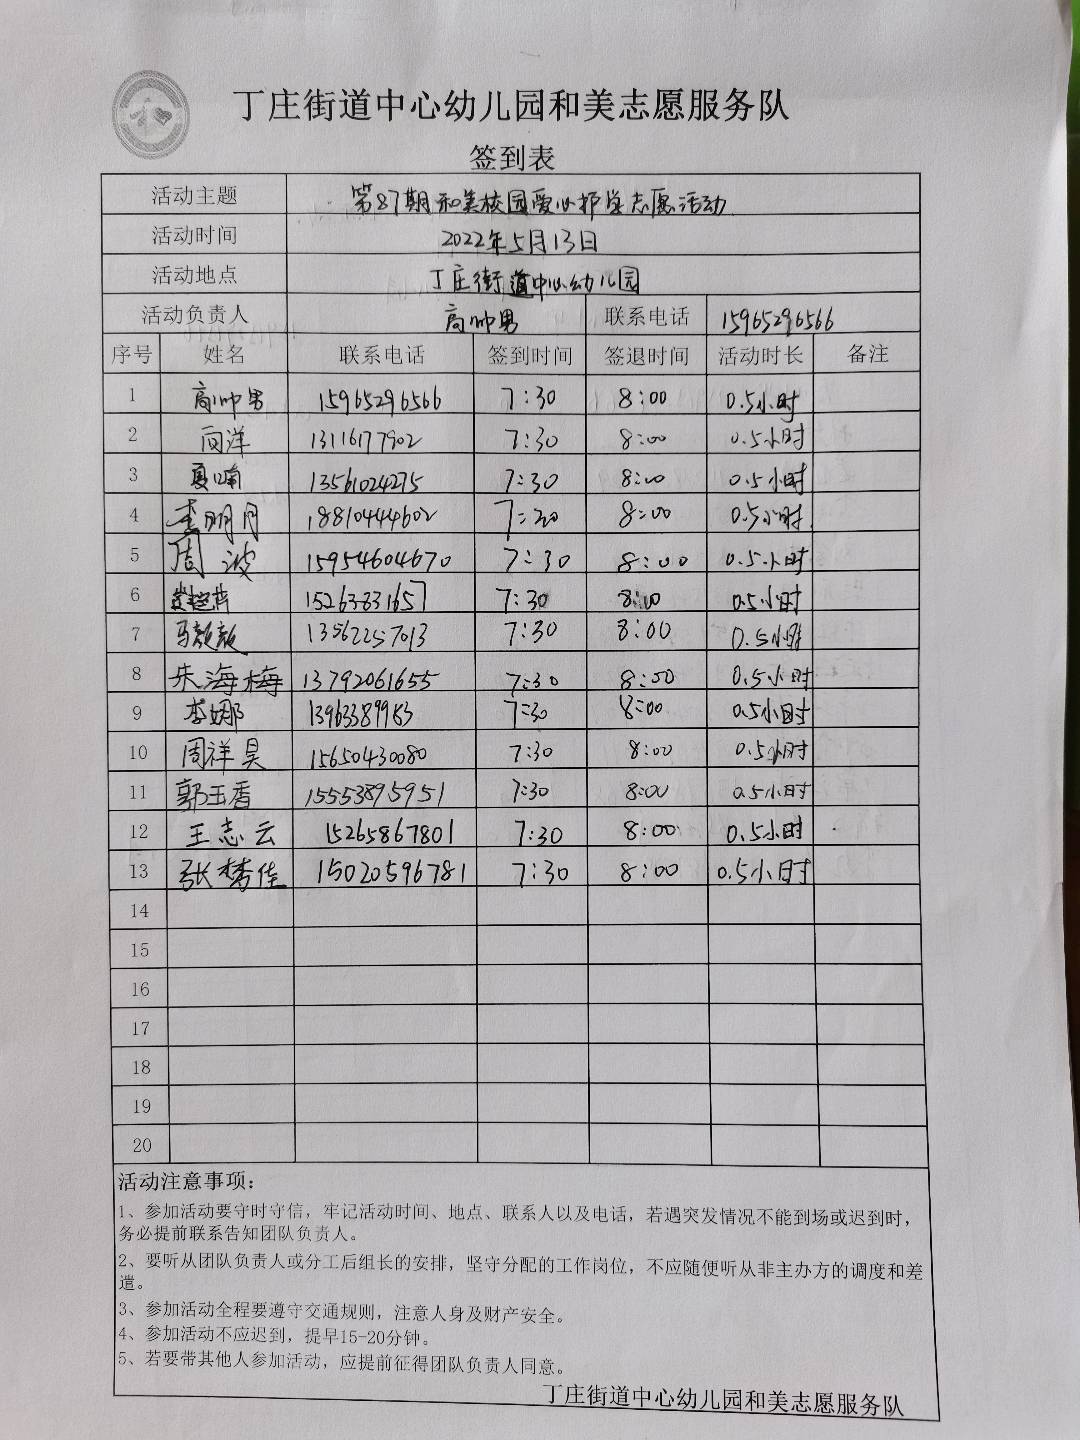 和
丁庄街道中心幼儿园和美志愿服务队
签到表
活动主题 第87期和美校园爱心护学志愿活动
活动时间 2022年5月13日
活动地点 丁庄街道中心幼儿园
活动负责人 高帅男 联系电话 15965296566
序号 姓名 联系电话 签到时间 签退时间 活动时长 备注
1 高帅男 15965296566 7:30 8:00 0.5小时
2 闫洋 13116177902 7:30 8:00 0.5小时
3 夏喃 13561024275 7:30 8:00 0.5小时
4 李明月 18810444602 7:30 8:00 0.5小时
5 周波 15954604670 7:30 8:00 0.5小时
6 15263831657 7:30 8:00 0.5小时
7 马敖敖 13562257013 7:30 8:00 0.5小时
8 朱海梅 13792061655 7:30 8:00 0.5小时
9 李娜 13963389983 7:30 8:00 0.5小时
10 周祥昊 15650430080 7:30 8:00 0.5小时
11 郭玉香 15553895951 7:30 8:00 0.5小时
12 王志云 15265867801 7:30 8:00 0.5小时
13 张梦佳 15020596781 7:30 8:00 0.5小时
14
15
16
17
18
19
20
活动注意事项：
1、参加活动要守时守信，牢记活动时间、地点、联系人以及电话，若遇突发情况不能到场或迟到时，
务必提前联系告知团队负责人。
2、要听从团队负责人或分工后组长的安排，坚守分配的工作岗位，不应随便听从非主办方的调度和差
遣。
3、参加活动全程要遵守交通规则，注意人身及财产安全。
4、参加活动不应迟到，提早15-20分钟。
5、若要带其他人参加活动，应提前征得团队负责人同意。
丁庄街道中心幼儿园和美志愿服务队